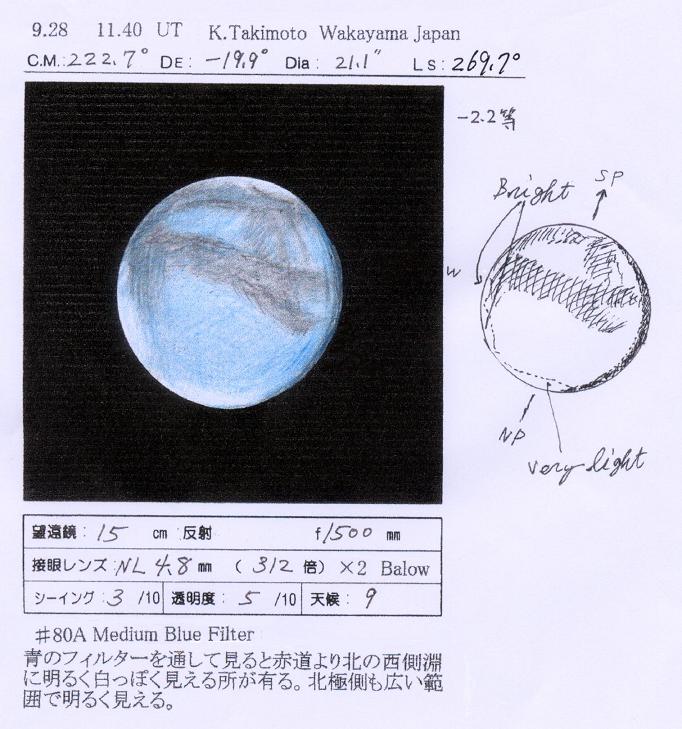 9.28 11.40 UT K.Takimoto Wakayama Japan
C.M.:222.7° DE: -19.9° Dia: 21.1" Ls: 269.7°
-2.2等
Bright
SP
W
NP
very light
望遠鏡: 15 cm 反射 f1500 mm
接眼レンズ:NL 4.8 mm (312 倍) ×2 Balow
シーイング:3 /10 透明度: 5 /10 天候: 9
#80A Medium Blue Filter
青のフィルターを通して見ると赤道より北の西側淵
に明るく白っぽく見える所が有る。北極側も広い範
囲で明るく見える。